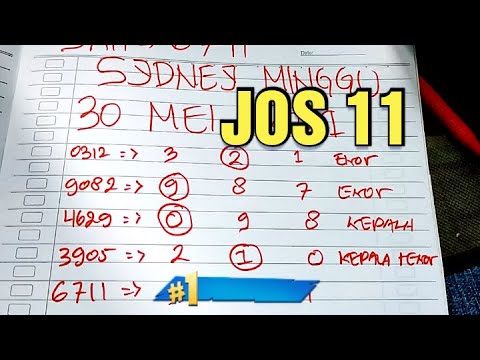 SYDNEY MINGGU
30 MEI
JOS 11
Date:
0312 => 3 2 1 EKOR
9082 => 9 8 7 EKOR
4629 => 0 9 8 KEPALA
3905 => 2 1 0 KEPALA + EKOR
6711 => #1